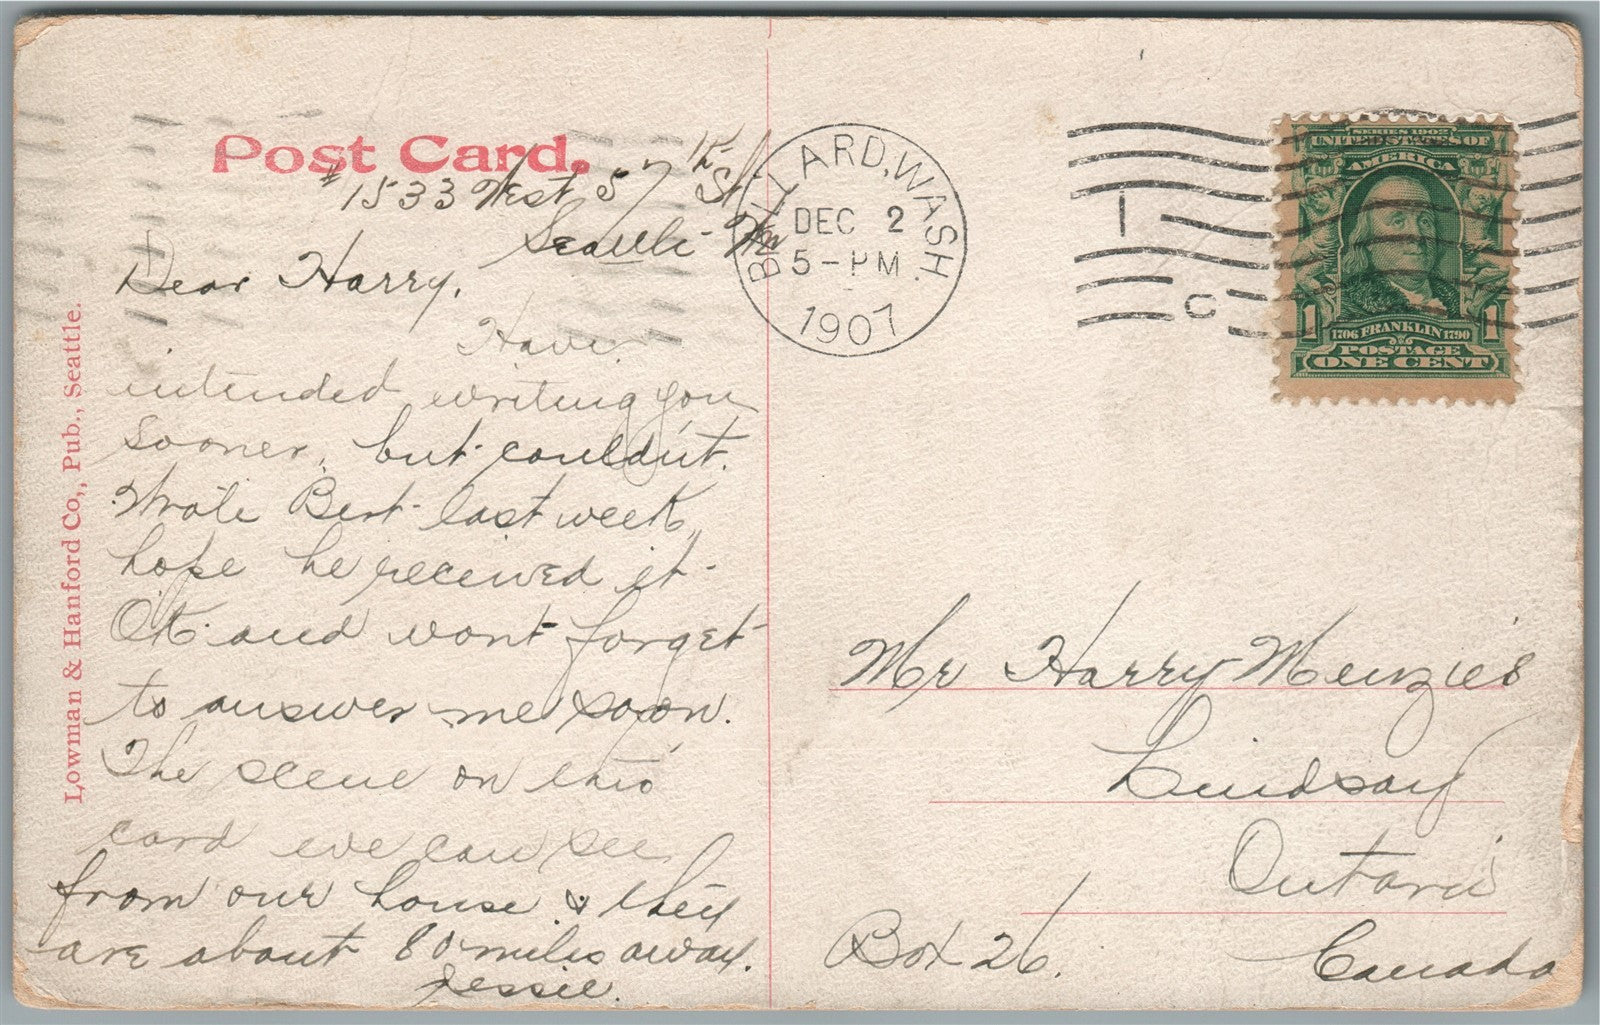 Post Card.
#1533 West 57th St
Seattle Wn
Dear Harry,
Have
intended writing you
sooner, but couldn't.
Wrote Bert last week,
hope he received it
O.K. and wont forget
to answer me soon.
The scene on this
card we can see
from our house & they
are about 80 miles away.
Jessie.
Lowman & Hanford Co,, Pub., Seattle.
BALLARD, WASH.
DEC 2
5-PM
1907
1
C
SERIES 1902
UNITED STATES OF
AMERICA
1 1706 FRANKLIN 1790 1
POSTAGE
ONE CENT
Mr Harry Menzies
Lindsay
Ontario
Box 26.
Canada